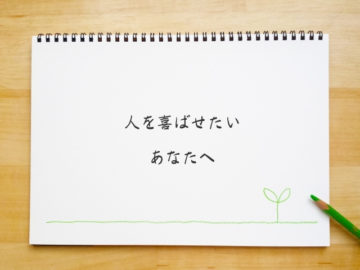 人を喜ばせたい
あなたへ